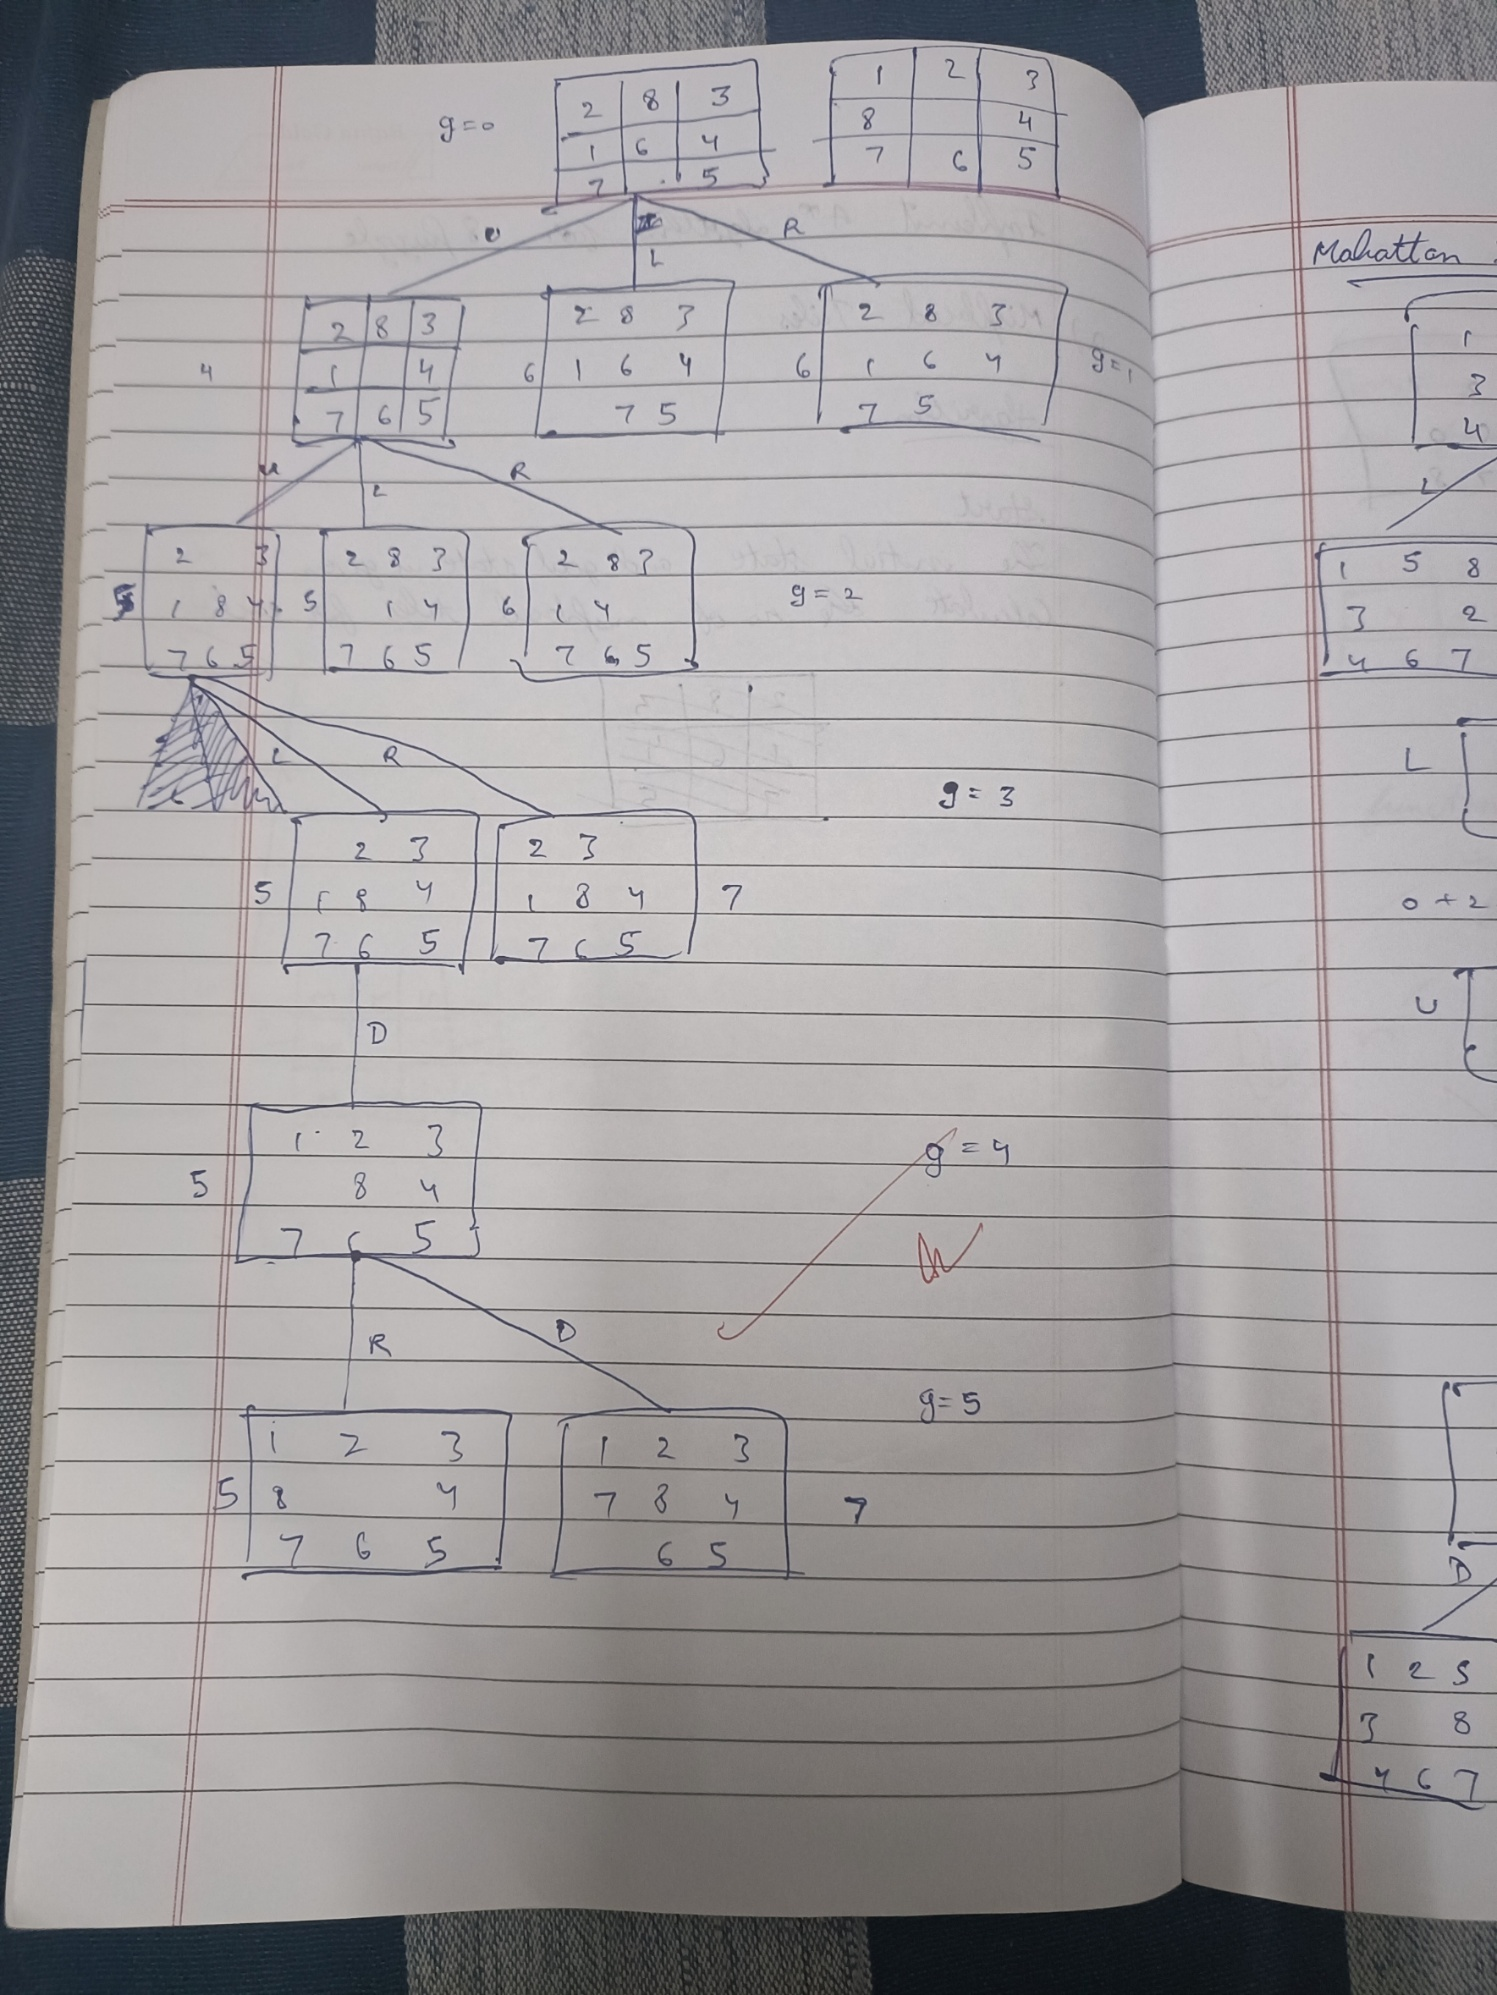 g=0
2 8 3
1 6 4
7 5
1 2 3
8 4
7 6 5
U
L
R
4
2 8 3
1 4
7 6 5
6
2 8 3
1 6 4
7 5
6
2 8 3
1 6 4
7 5
g=1
U
L
R
2 3
1 8 4
7 6 5
5
2 8 3
1 4
7 6 5
6
2 8 3
1 4
7 6 5
g=2
L
R
g=3
5
2 3
1 8 4
7 6 5
2 3
1 8 4
7 6 5
7
D
5
1 2 3
8 4
7 6 5
g=4
R
D
g=5
5
1 2 3
8 4
7 6 5
1 2 3
7 8 4
6 5
7
Mahattan
1
3
4
L
1 5 8
3 2
4 6 7
L
0+2
U
D
1 2 5
3 8
4 6 7